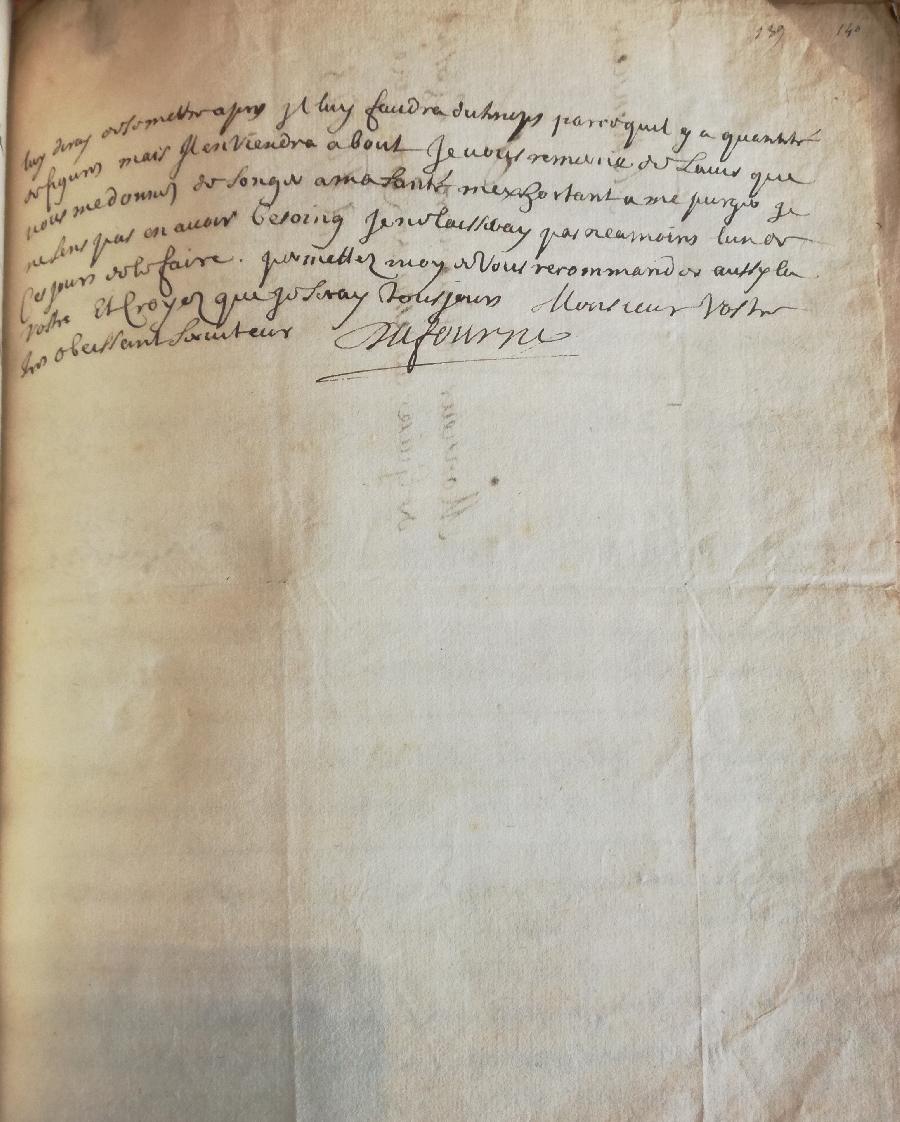 139 140
luy diray de se mettre apres Il luy faudra du temps parcequil y a quantité
de figures mais Il en viendra a bout Je vous remercie de Lavis que
vous me donnez de songer a ma santé mexhortant a me purger je
ne sens pas en avoir besoing Je ne laisseray pas neamoins lun de
Ces jours de le faire. permettez moy de Vous recommander aussy la
vostre Et Croyez que je seray Tousjours Monsieur Vostre
tres obeissant serviteur Dufourni